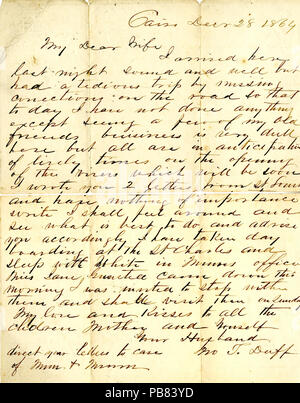 Cairo Decr 28 1864
My Dear Wife
I arrived here
last night sound and well but
had a tedious trip by missing
connections on the road so that
to day I have not done anything
except seeing a few of my old
friends business is very dull
here but all are in anticipation
of lively times on the opening
of the rivers which will be soon
I wrote you 2 letters from St Louis
and have nothing of importance
write I shall feel around and
see what is best to do and advise
you accordingly I have taken day
boarding at the St Charles and
sleep with White in Munns office
Miss Jane came down this
morning was invited to stop with
them and shall visit them on Sunday
My love and Kisses to all the
children Mother and Yourself
Your Husband
Jno T. Duff
direct your letters to care
of Mun & Munn
alamy
Image ID: PB83YD
www.alamy.com